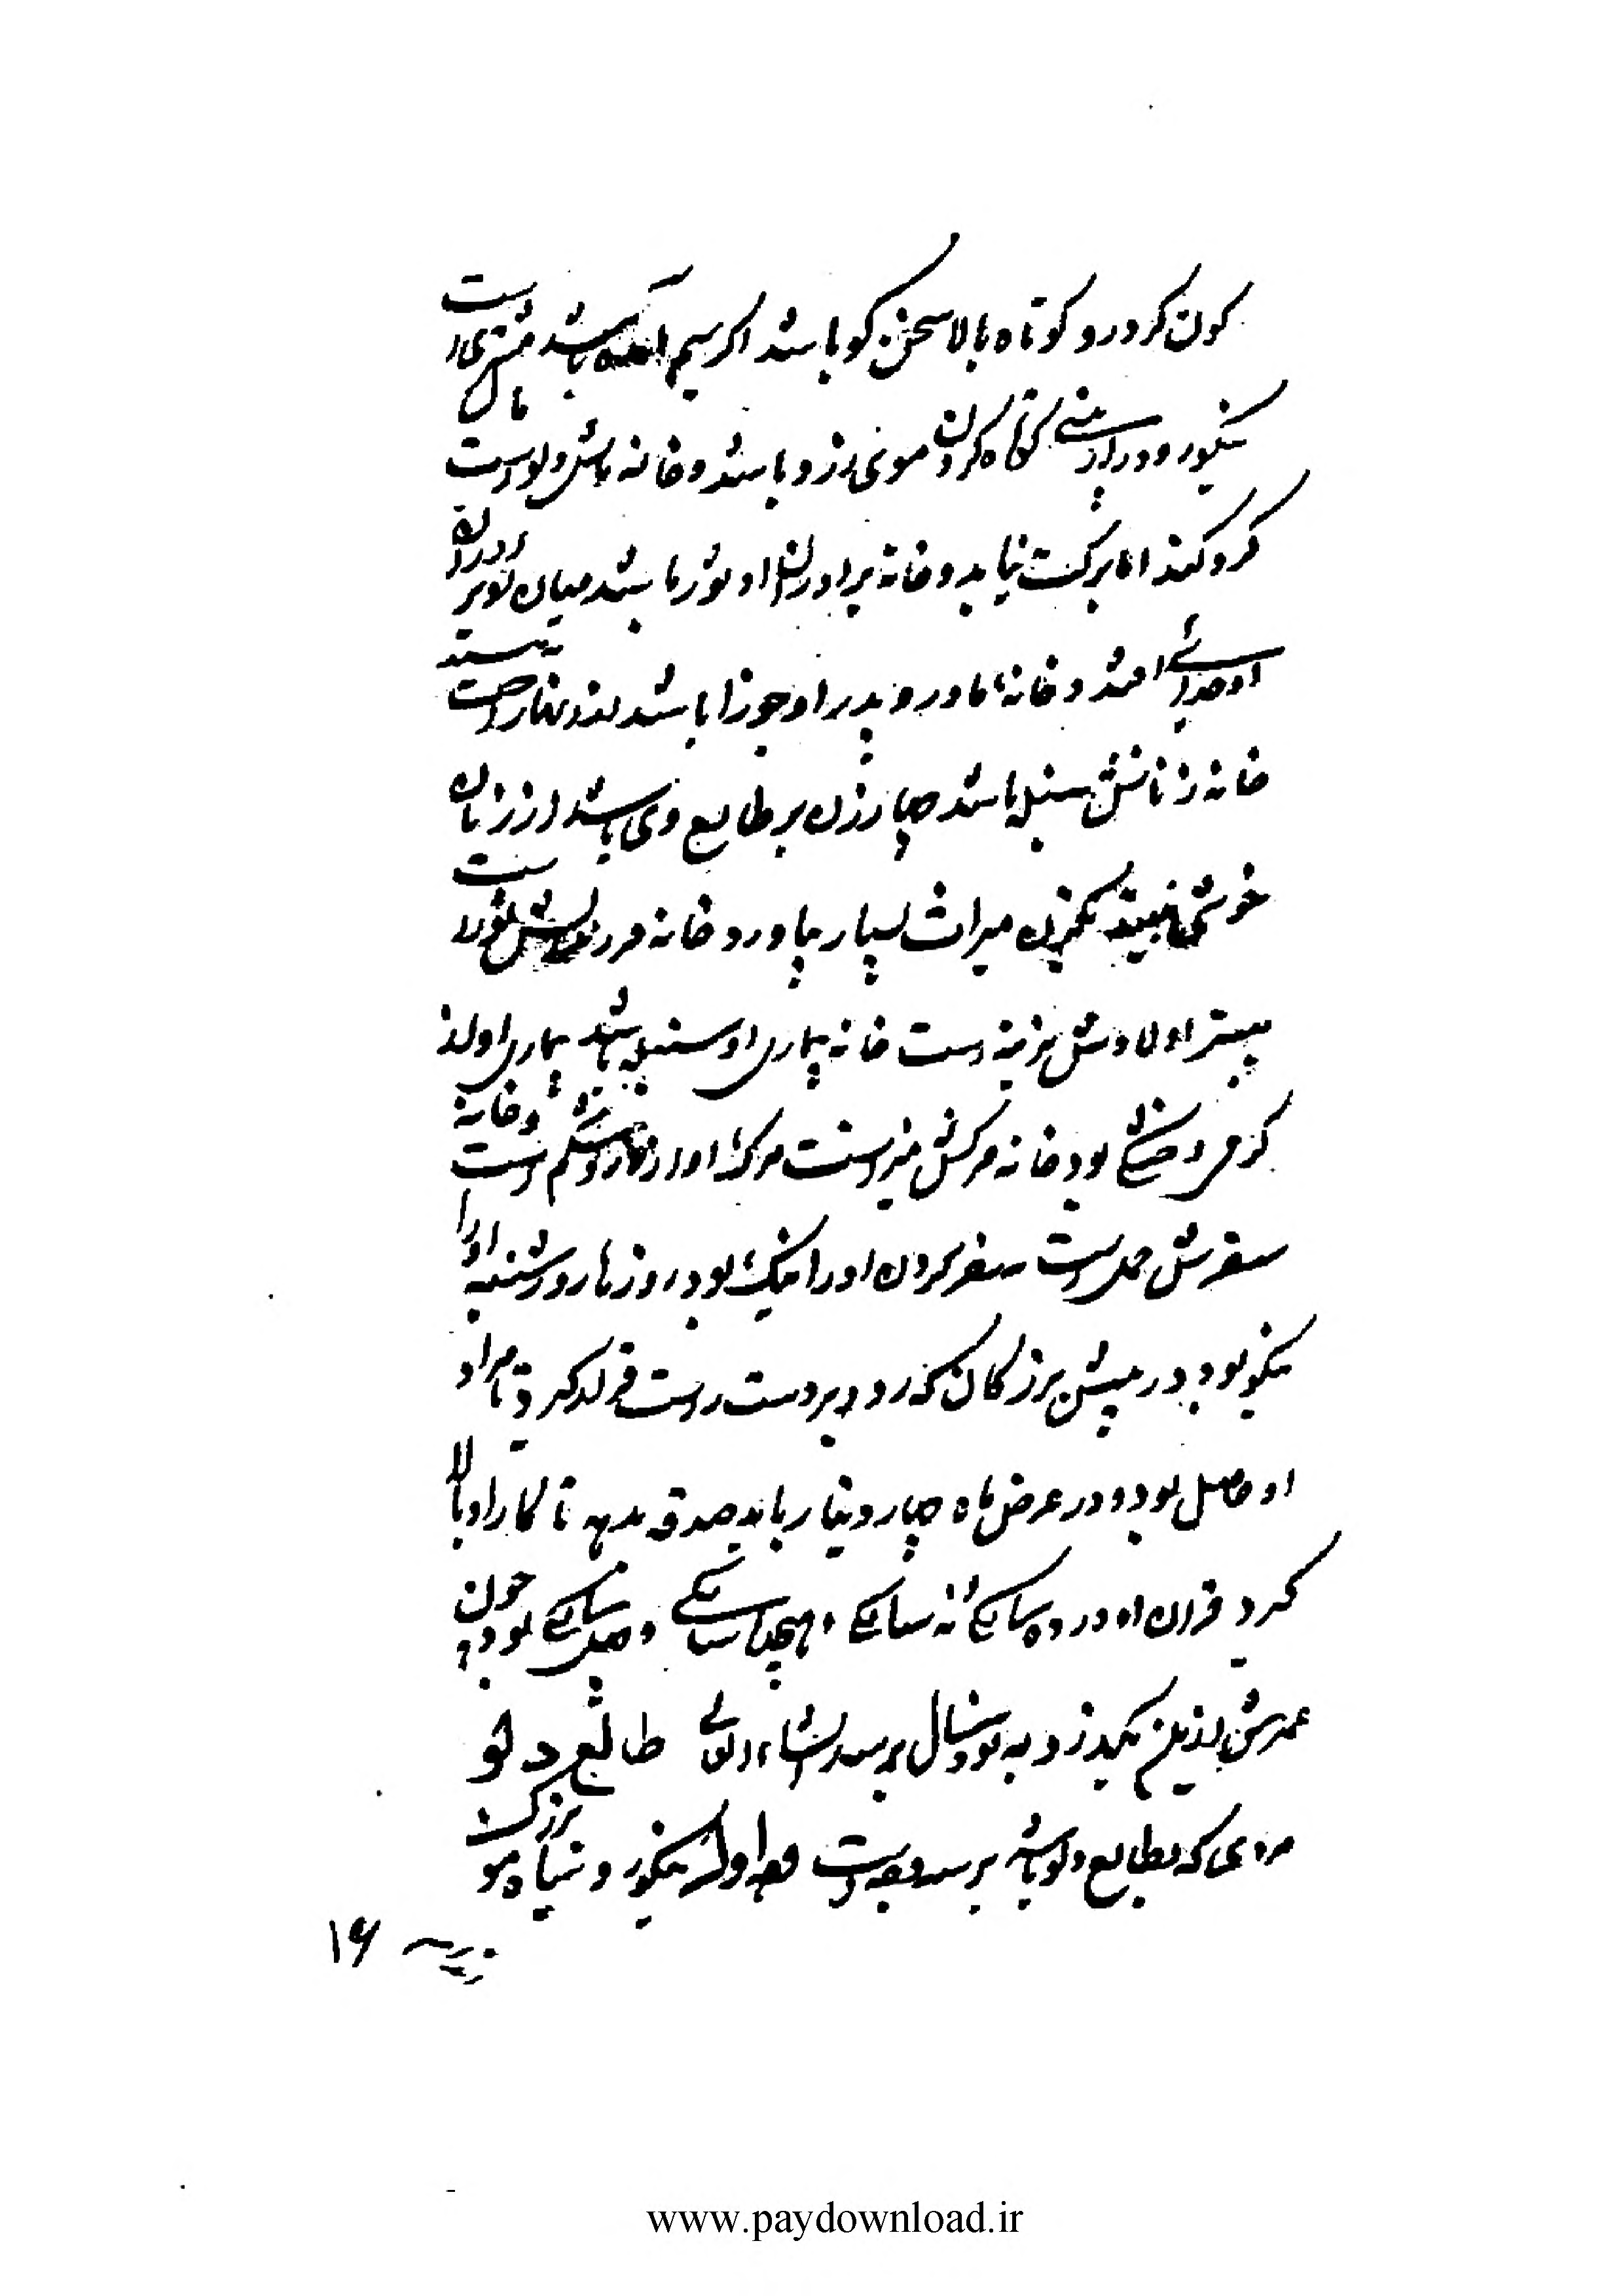 کون کرد رو کوتاه بالا سخن کو باشد اگر سیم باشد مشتری است
نیکو رو و دراز بینی کوتاه گردن موی زرد باشد و خانه مالش دلو است
گرد کند اما برکت نیابد و خانه برادران او ثور باشد میان او برادران
او جدائی افتد و خانه مادر و پدر او جوزا باشد راحت
خانه زنانش سنبله باشد چهار زن بر طالع وی باشد از زنان
خوشی نبیند یکزن میراث بسیار بیاورد خانه فرزندانش ثور است
بیشتر اولادش نرینه است خانه بیماری او سنبله باشد بیماری او از
گرمی و خشکی بود خانه مرگش میزانست مرگ او از درد شکم است و خانه
سفرش حمل است سفر کردن او را نیک بود روزها روز شنبه او را
نیکو بود در پیش بزرگان که رود بر دست راست قرار گیرد تا مراد
او حاصل بود و در عرض ماه چهار دینار باید صدقه بدهد تا کار او بالا
گیرد قران او در ده سالگی نه سالگی و پنجاه سالگی و چهل سالگی بود چون
عمرش از این بگذرد به نود سال برسد انشاء الله تعالی طالع دلو
مردی که بطالع دلو باشد بر سه وجه است وجه اول نیکو رو و سیاه مو بزرگ
۱۶
www.paydownload.ir